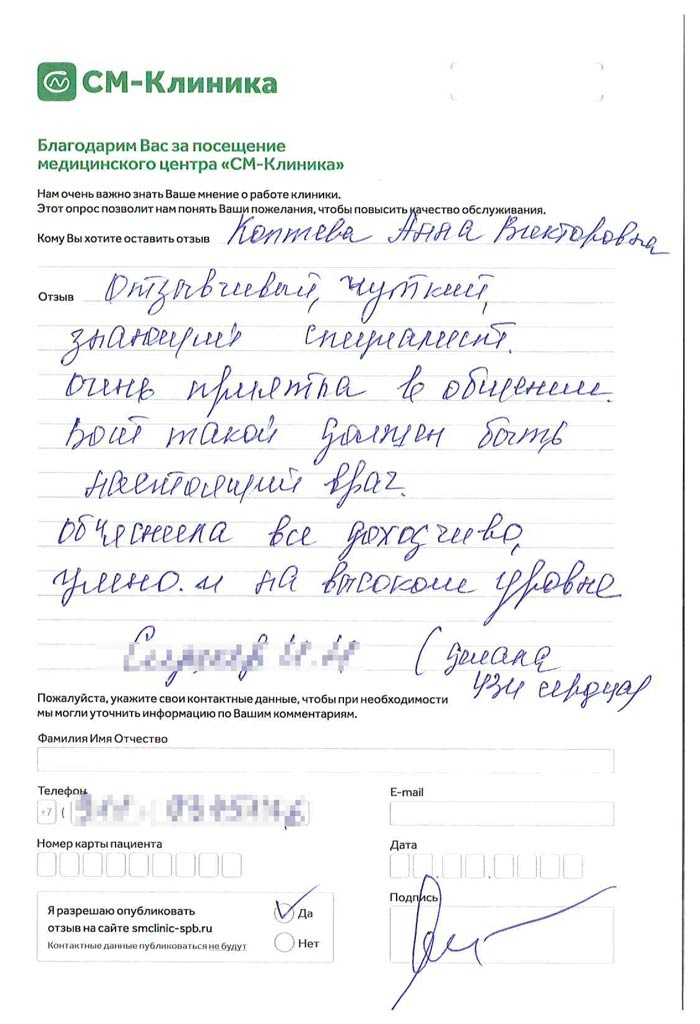 СМ-Клиника
Благодарим Вас за посещение
медицинского центра «СМ-Клиника»
Нам очень важно знать Ваше мнение о работе клиники.
Этот опрос позволит нам понять Ваши пожелания, чтобы повысить качество обслуживания.
Кому Вы хотите оставить отзыв Коптева Анна Викторовна
Отзыв Отзывчивый, чуткий,
знающий специалист.
очень приятна в общении.
Вот такой должен быть
настоящий врач.
объяснила все доходчиво,
умно. и на высоком уровне
(делала
узи сердца)
Пожалуйста, укажите свои контактные данные, чтобы при необходимости
мы могли уточнить информацию по Вашим комментариям.
Фамилия Имя Отчество
Телефон E-mail
+7 (
Номер карты пациента Дата
Я разрешаю опубликовать
отзыв на сайте smclinic-spb.ru
Контактные данные публиковаться не будут
Да
Нет
Подпись